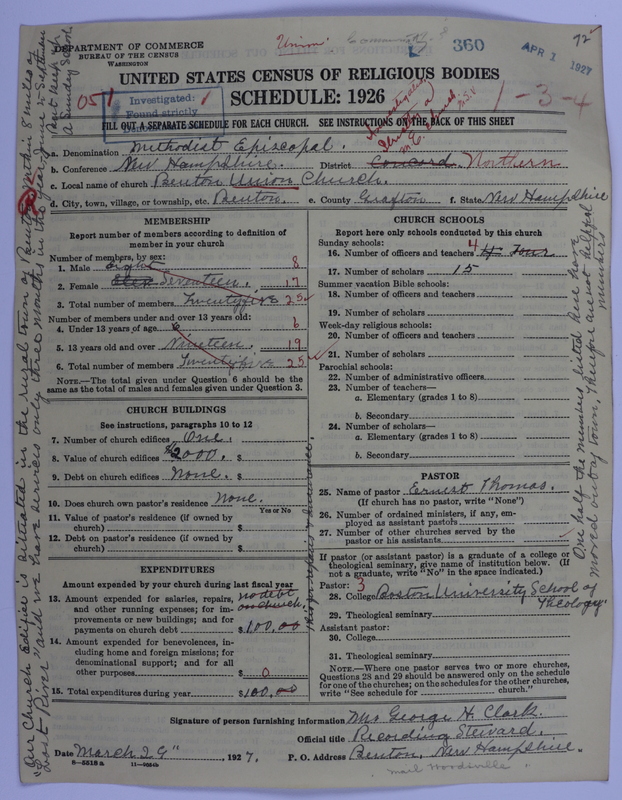 DEPARTMENT OF COMMERCE
BUREAU OF THE CENSUS
WASHINGTON
Union
Community
360
APR 1 1927
92
UNITED STATES CENSUS OF RELIGIOUS BODIES
SCHEDULE: 1926
051
Investigated:
Found strictly
1
1-3-4
FILL OUT A SEPARATE SCHEDULE FOR EACH CHURCH. SEE INSTRUCTIONS ON THE BACK OF THIS SHEET
a. Denomination Methodist Episcopal.
b. Conference New Hampshire. District Concord Northern
c. Local name of church Benton Union Church.
d. City, town, village, or township, etc. Benton. e. County Grafton f. State New Hampshire
MEMBERSHIP
Report number of members according to definition of
member in your church
Number of members, by sex:
1. Male eight 8
2. Female Seventeen. 17
3. Total number of members Twentyfive 25
Number of members under and over 13 years old:
4. Under 13 years of age 6 6
5. 13 years old and over Nineteen 19
6. Total number of members Twentyfive 25
NOTE.—The total given under Question 6 should be the
same as the total of males and females given under Question 3.
CHURCH BUILDINGS
See instructions, paragraphs 10 to 12
7. Number of church edifices One.
8. Value of church edifices $2000. $
9. Debt on church edifices None. $
10. Does church own pastor's residence None.
Yes or No
11. Value of pastor's residence (if owned by
church) $
12. Debt on pastor's residence (if owned by
church) $
EXPENDITURES
Amount expended by your church during last fiscal year
13. Amount expended for salaries, repairs,
and other running expenses; for im-
provements or new buildings; and for
payments on church debt $100.00
no debt
on church.
14. Amount expended for benevolences, in-
cluding home and foreign missions; for
denominational support; and for all
other purposes $ 0
15. Total expenditures during year $100.00
CHURCH SCHOOLS
Report here only schools conducted by this church
Sunday schools:
16. Number of officers and teachers 4 4 Four
17. Number of scholars 15
Summer vacation Bible schools:
18. Number of officers and teachers
19. Number of scholars
Week-day religious schools:
20. Number of officers and teachers
21. Number of scholars
Parochial schools:
22. Number of administrative officers
23. Number of teachers—
a. Elementary (grades 1 to 8)
b. Secondary
24. Number of scholars—
a. Elementary (grades 1 to 8)
b. Secondary
PASTOR
25. Name of pastor Ernest Thomas.
(If church has no pastor, write "None")
26. Number of ordained ministers, if any, em-
ployed as assistant pastors
27. Number of other churches served by the
pastor or his assistants
If pastor (or assistant pastor) is a graduate of a college or
theological seminary, give name of institution below. (If
not a graduate, write "No" in the space indicated.)
Pastor: 3
28. College Boston University School of
Theology.
29. Theological seminary
Assistant pastor:
30. College
31. Theological seminary
NOTE.—Where one pastor serves two or more churches,
Questions 28 and 29 should be answered only on the schedule
for one of the churches; on the schedules for the other churches,
write "See schedule for church."
Signature of person furnishing information Mrs George H. Clark.
Official title Recording Steward.
Date March 29" 1927. P. O. Address Benton, New Hampshire"
8-5518a
mail Woodsville
Our Church Edifice is situated in the rural town of Benton within 8 miles of
"Lost River" and we have services only three months in the year
a Sunday School.
One half the members listed above have
moved out of town, therefore are not helpful
members